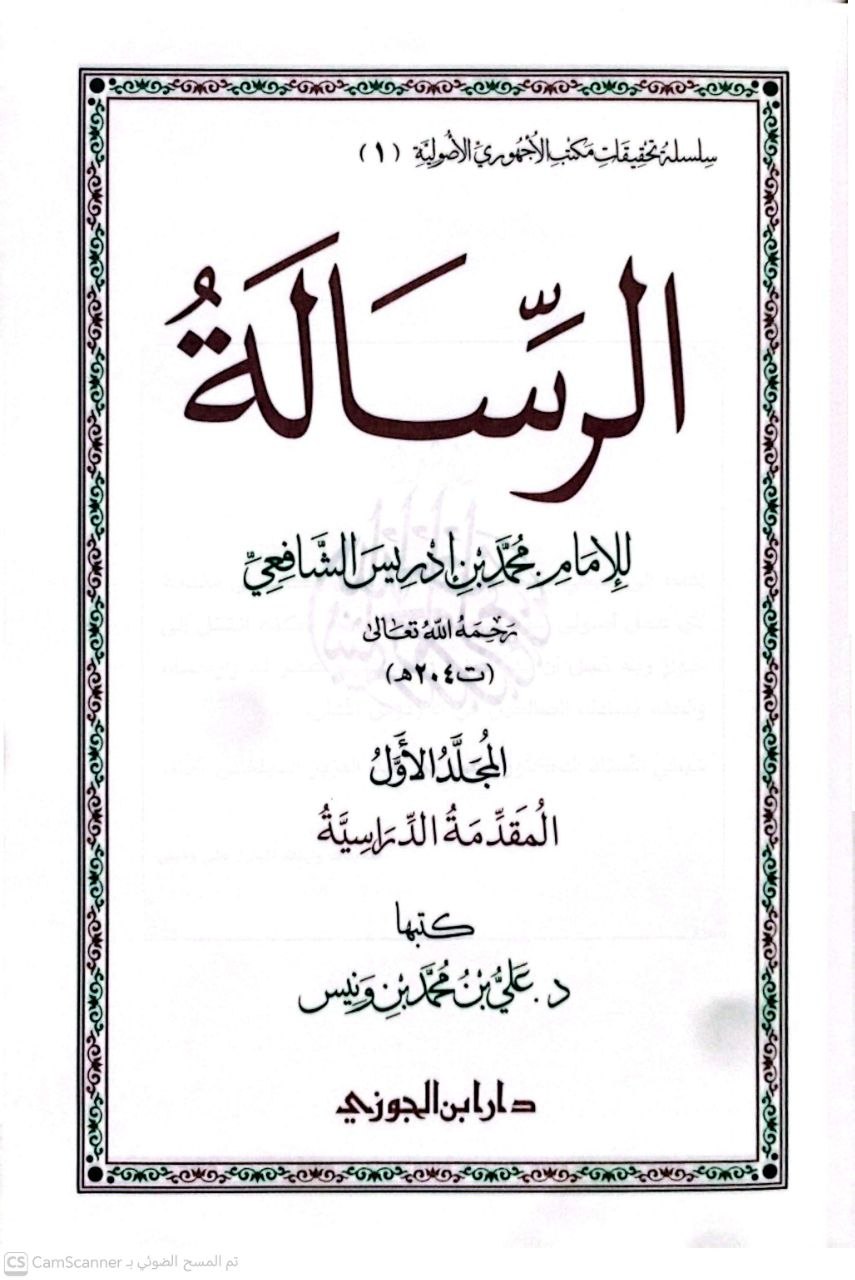 سلسلة تحقيقات مكتب الأجهوري الأصولية (١)
الرِّسَالَةُ
للإمام محمَّد بن إدريس الشَّافعيِّ
رحمه الله تعالى
(ت ٢٠٤هـ)
المُجَلَّدُ الأَوَّلُ
المُقَدِّمَةُ الدِّرَاسِيَّةُ
كتبها
د. عليُّ بْنُ محمَّد بن ونيس
دار ابن الجوزي
CS CamScanner تم المسح الضوئي بـ